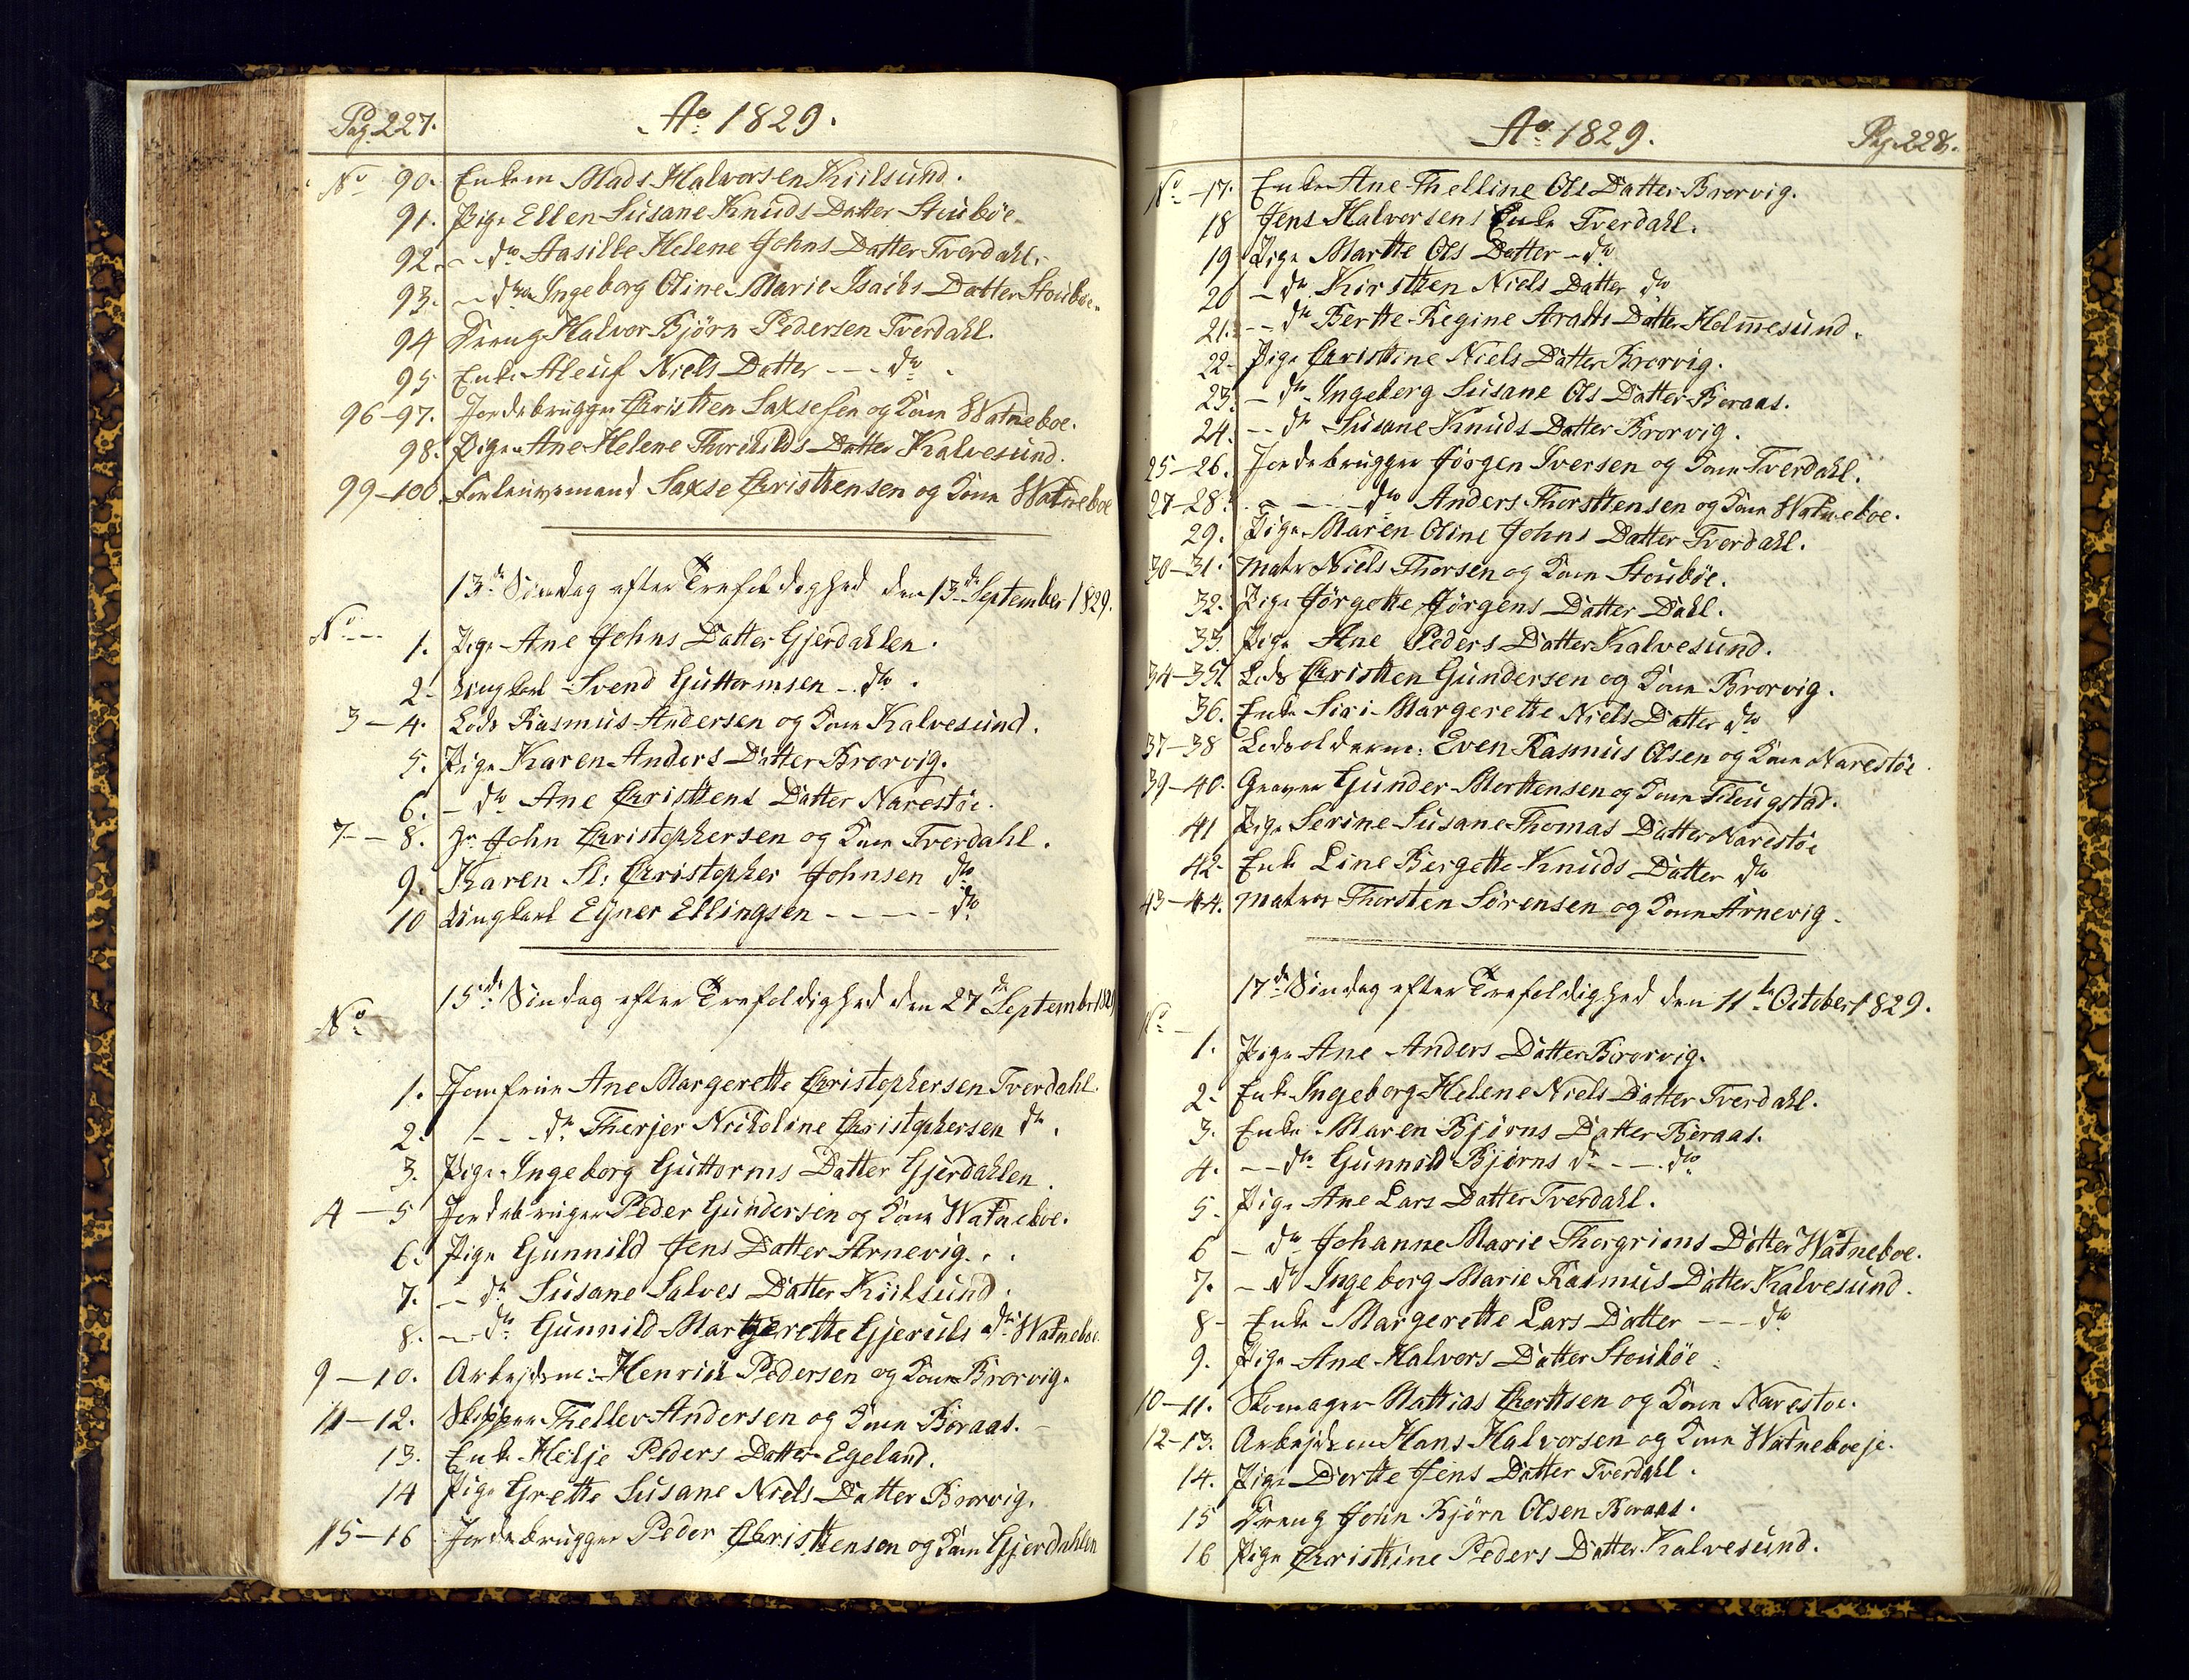 Pag. 227.
Ao 1829.
No 90. Enkem Mads Halvorsen Kiilsund.
91. Pige Ellen Susane Knuds Datter Stoubøe
92. - do Aasille Helene Johns Datter Tverdahl.
93. - do Ingeborg Oline Marie Isachs Datter Stoubøe.
94 Dreng Halvor Bjørn Pedersen Tverdahl.
95 Enke Aleuf Niels Datter - - - do
96-97. Jordebrugger Christen Saxsesen og Kone Watneboe.
98. Pige Ane Helene Thorkilds Datter Kalvesund.
99-100 Forlingsmand Saxse Christensen og Kone Watneboe
13de Søndag efter Trefoldighed den 13de September 1829.
No
1. Pige Ane Johns Datter Gjerdahlen.
2- Ungkarl Svend Guttormsen - do.
3-4. Lods Rasmus Andersen og Kone Kalvesund.
5. Pige Karen Anders Datter Brorvig.
6. - do Ane Christens Datter Narestøe.
7--8. Hr. John Christophersen og Kone Tverdahl.
9. Karen Sl: Christopher Johnsen do
10 Ungkarl Ejner Ellingsen - - - - do
15de Søndag efter Trefoldighed den 27de September 1829
No
1. Jomfrue Ane Margrette Christophersen Tverdahl.
2. - - - do Therjer Nicholine Christophersen do.
3. Pige Ingeborg Guttorms Datter Gjerdahlen.
4-5 Jordebruger Peder Gundersen og Kone Watneboe.
6. Pige Gunnild Jens Datter Arnevig.
7. - do Susane Salves Datter Kiilsund.
8. - do Gunnild Margerette Gjeruls do Watneboe.
9-10. Arbejdsm: Henrich Pedersen og Kone Brorvig.
11-12. Skipper Thellev Andersen og Kone Boraas.
13. Enke Helje Peders Datter Egeland.
14 Pige Grette Susane Niels Datter Brorvig.
15-16 Jordebrugger Peder Christensen og Kone Gjerdahlen
Ao 1829.
Pag. 228.
No -17. Enke Ane Thelline Ols Datter Brorvig.
18 Jens Halvorsens Enke Tverdahl.
19 Pige Marthe Ols Datter - do
20 - do Kirstten Niels Datter do
21. - - do Bertte Regine Aralts Datter Holmesund.
22- Pige Christine Niels Datter Brorvig.
23. - do Ingeborg Susane Ols Datter Boraas.
24. - - do Susane Knuds Datter Brorvig.
25-26. Jordebrugger Jørgen Iversen og Kone Tverdahl.
27-28. - - - do Anders Thorsttensen og Kone Watneboe.
29. Pige Maren Oline Johns Datter Tverdahl.
30-31. Matr. Niels Thorsen og Kone Stoubøe.
32. Pige Jørgette Jørgens Datter Dahl.
33. Pige Ane Peders Datter Kalvesund.
34-35. Lods Christen Gundersen og Kone Brorvig.
36. Enke Siri Margerette Niels Datter do
37-38 Lodsolderm: Even Rasmus Olsen og Kone Narestøe
39-40. Graver Gunder Morttensen og Kone Flougstad.
41 Pige Serine Susane Thomas Datter Narestøe
42- Enke Line Bergette Knuds Datter do
43-44. Matros Thorsten Sørensen og Kone Arnevig.
17de Søndag efter Trefoldighed den 11te October 1829.
No
1. Pige Ane Anders Datter Brorvig.
2- Enke Ingeborg Helene Niels Datter Tverdahl.
3. Enke Maren Bjørns Datter Boraas.
4. - - do Gunnild Bjørns do - - - do
5. Pige Ane Lars Datter Tverdahl.
6 - do Johanne Marie Thorgrims Datter Watneboe.
7. - do Ingeborg Marie Rasmus Datter Kalvesund.
8- Enke Margerette Lars Datter - - - do
9. Pige Ane Halvors Datter Stoubøe
10-11. Skomager Mattias Chorttsen og Kone Narestøe.
12-13. Arbejdsm Hans Halvorsen og Kone Watneboeje.
14. Pige Dortte Jens Datter Tverdahl.
15 Dreng John Bjørn Olsen Boraas.
16 Pige Christine Peders Datter Kalvesund.